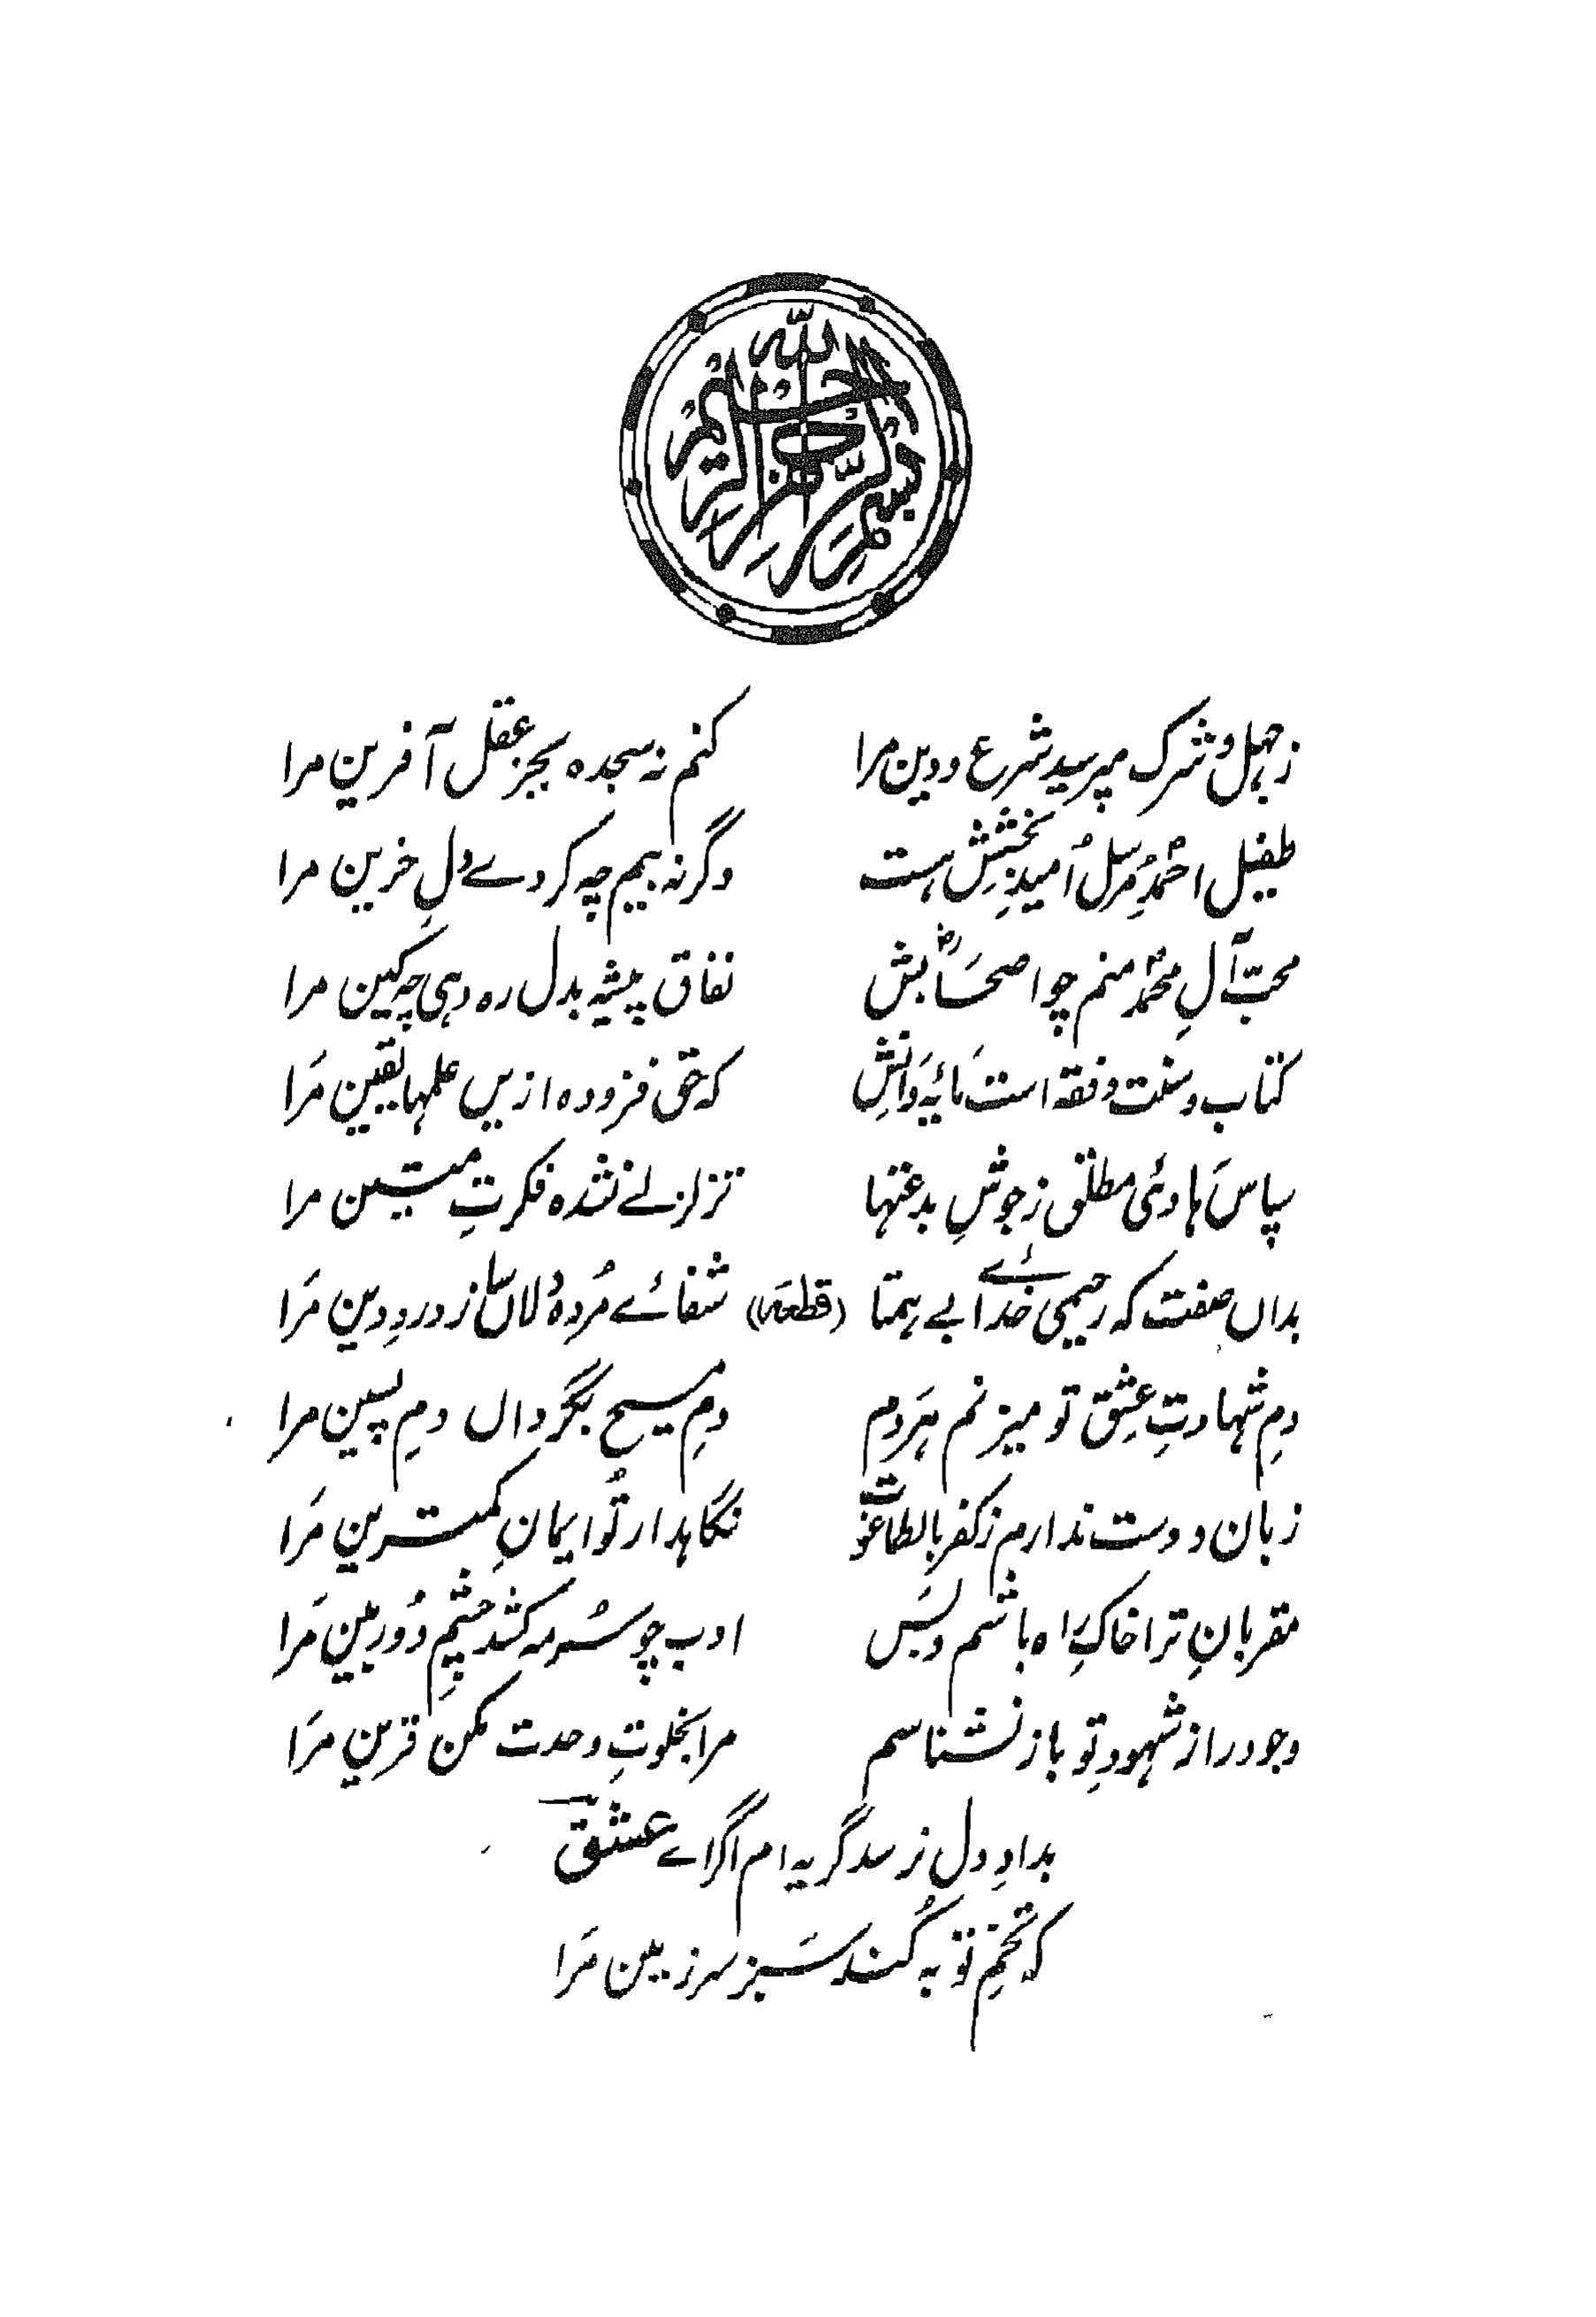 بسم الله الرحمن الرحیم
ز جہل و شرک مپرسید شرع و دین مرا کنم نہ سجدہ بجز عقل آفرین مرا
طفیل احمدِ مُرسل اُمیدِ بخشِش ہست وگرنہ بیم چہ کردے دلِ حزین مرا
محبّ آلِ محمدؐ منم چو اصحابش نفاق پیشہ بدل رہ دہی چہ کین مرا
کتاب و سنت و فقہ است مَایۂ دَانِش کہ حق فزودہ ازیں علمہا یقین مَرا
سپاس ہادئ مطلق ز جوشِ بدعتہا تزلزلے نشدہ فکرتِ متین مرا
بداں صفت کہ رحیمی خدائے بے ہمتا (قطعہ) شفائے مُردہ دلاں ساز درد دین مَرا
دمِ شہادتِ عِشق تو میزنم ہَردم دمِ مسیح بگرداں دمِ پسین مرا
زبان و دست ندارم ز کفر بالطاغوت نگاہدار تُو ایمانِ کمترین مَرا
مقربانِ ترا خاکِ راہ باشم و بَس ادب چو سُرمہ کشد چشمِ دُوربین مَرا
وجود را ز شہودِ تو باز نشناسم مرا بخلوتِ وحدت مکن قرین مرَا
بدادِ دل نرسد گریہ ام اگر اے عشق
کہ تخمِ توبہ کُند سَبز سرزمین مَرا